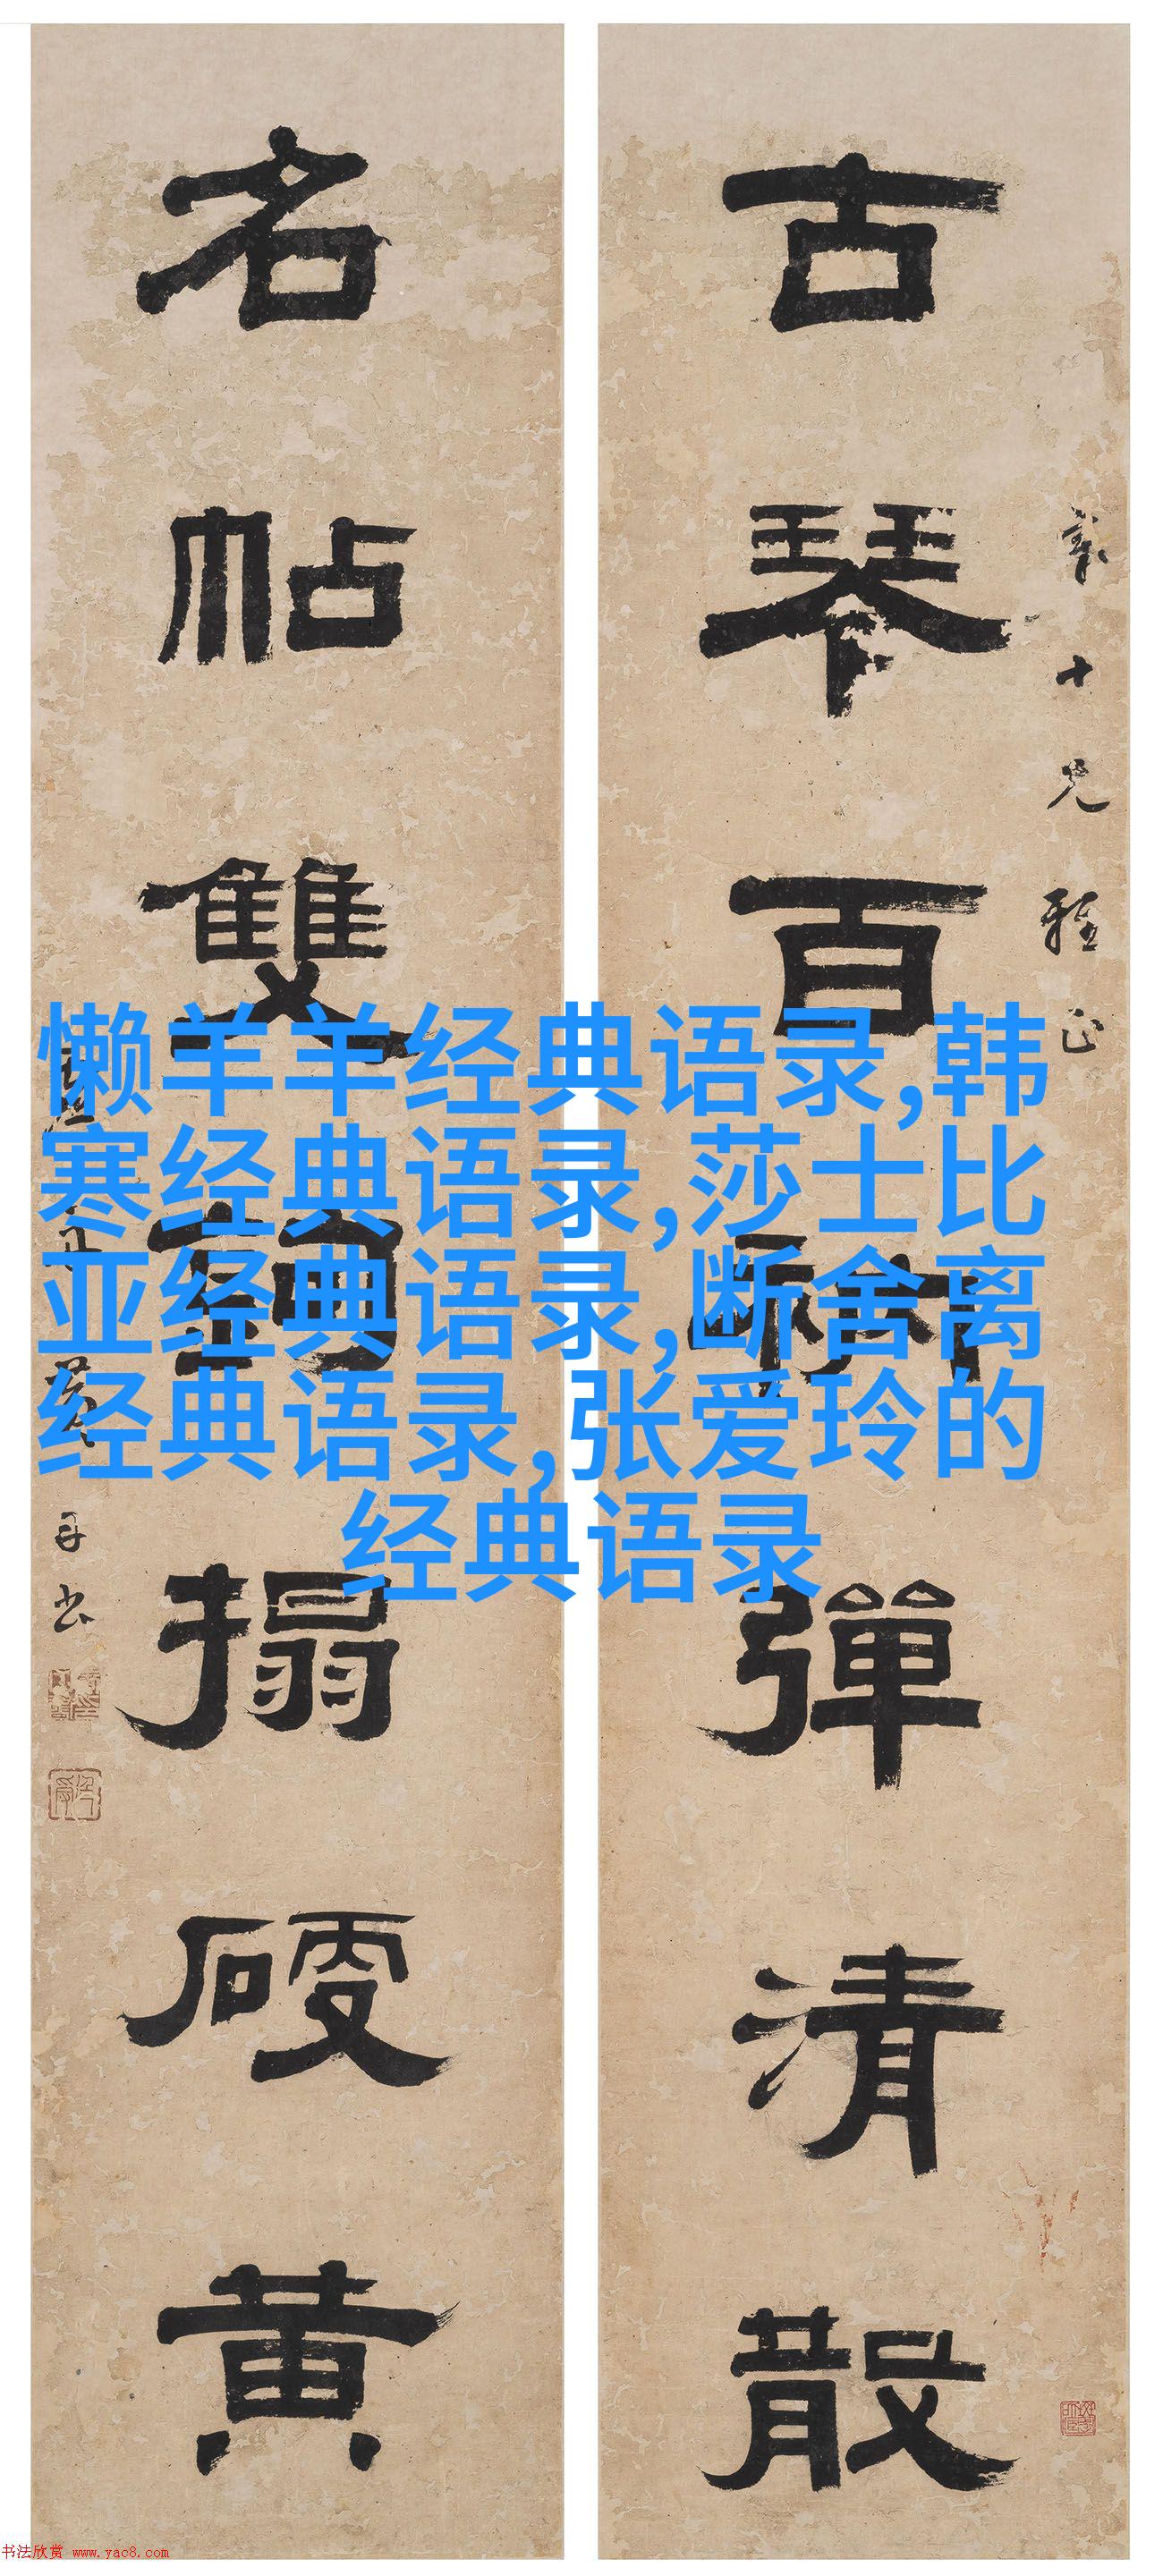 古琴百衲彈清散
十兄雅正
名帖雙鉤搨硬黄
弟书
懒羊羊经典语录,韩
寒经典语录,莎士比
亚经典语录,断舍离
经典语录,张爱玲的
经典语录
书法欣赏 www.yac8.com